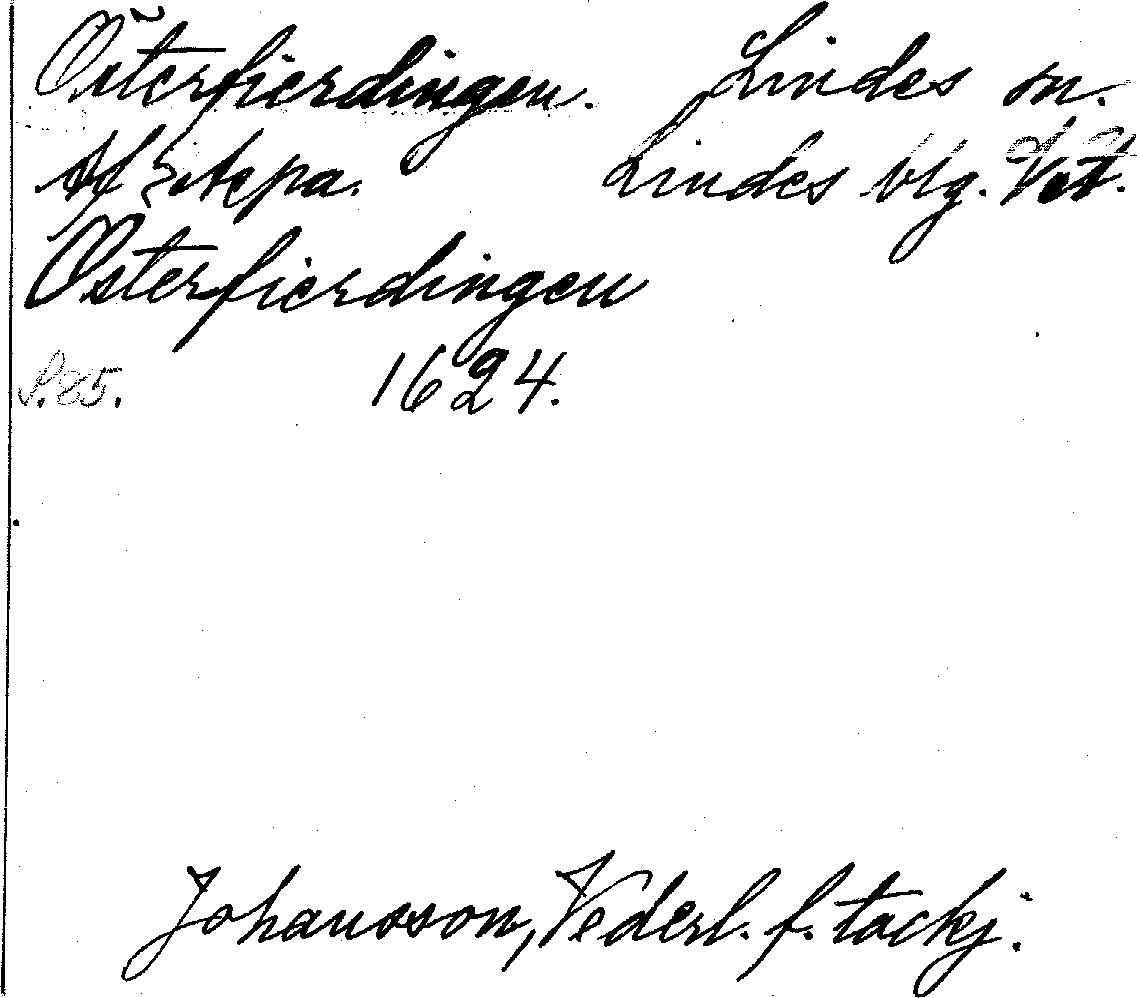 Österfierdingen. Lindes sn.
Lindes blg. Vst.
Österfierdingen
S. 85. 1624.
Johansson, Vederl. f. tackj.